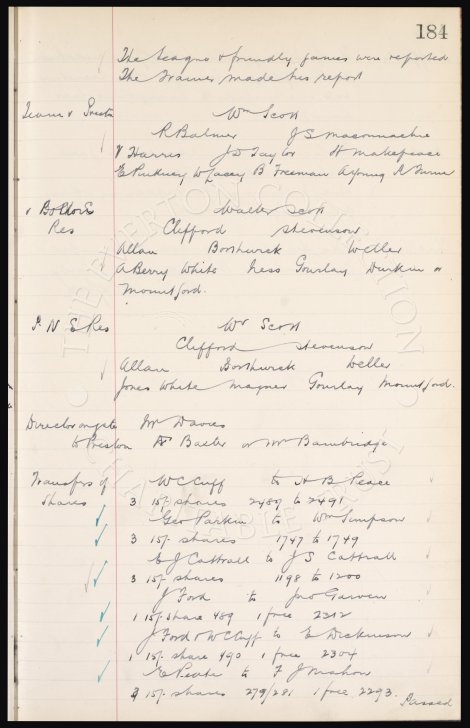 184
The League & friendly games were reported
The Trainer made his report
Team v Preston
Wm Scott
R Balmer J S Maconnachie
V Harris J D Taylor H Makepeace
E Pinkney W Lacey B Freeman A Young R Turner
v Bolton
Res
Walter Scott
Clifford Stevenson
Allan Borthwick Weller
A Berry White Ness Gourlay Durkin or
Mountford.
P. N E Res
Wr Scott
Clifford Stevenson
Allan Borthwick Weller
Jones White Magner Gourlay Mountford.
Director in gate
to Preston
Mr Davies
Baxter or Mr Bainbridge
Transfers of
Shares
W C Cuff to A B Peace
3 15/- shares 2489 to 2491
Geo Parkin to Wm Simpson
3 15/- shares 1747 to 1749
E J Cattrall to J S Cattrall
3 15/- shares 1198 to 1200
J Ford to Jno
1 15/- share 489 1 free 2312
J Ford & W C Cuff to E Dickinson
1 15/- share 490 1 free 2304
to F J McMahon
15/- shares 279/281 1 free 2293.
Passed
THE EVERTON COLLECTION
CHARITABLE TRUST